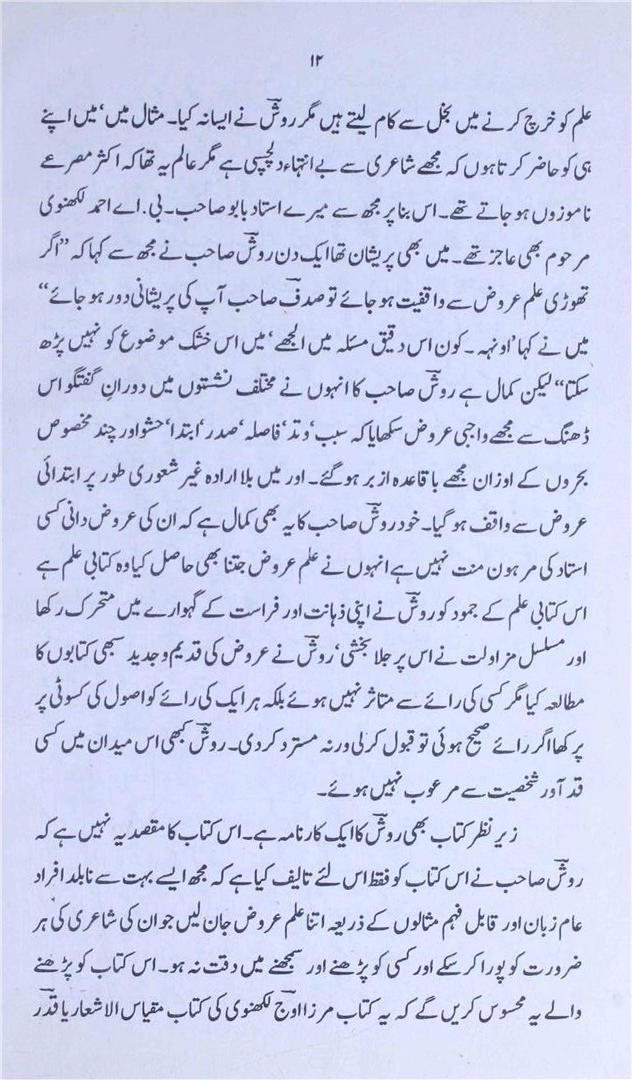 ۱۲
علم کو خرچ کرنے میں بخل سے کام لیتے ہیں مگر روشؔ نے ایسا نہ کیا۔ مثال میں، میں اپنے
ہی کو حاضر کرتا ہوں کہ مجھے شاعری سے بے انتہاء دلچسپی ہے مگر عالم یہ تھا کہ اکثر مصرعے
ناموزوں ہو جاتے تھے۔ اس بنا پر مجھ سے میرے استاد بابو صاحب۔ بی. اے احمد لکھنوی
مرحوم بھی عاجز تھے۔ میں بھی پریشان تھا ایک دن روشؔ صاحب نے مجھ سے کہا کہ ”اگر
تھوڑی علم عروض سے واقفیت ہو جائے تو صدفؔ صاحب آپ کی پریشانی دور ہو جائے“
میں نے کہا ’اونہہ۔ کون اس دقیق مسئلہ میں الجھے‘ میں اس خشک موضوع کو نہیں پڑھ
سکتا“ لیکن کمال ہے روشؔ صاحب کا انہوں نے مختلف نشستوں میں دورانِ گفتگو اس
ڈھنگ سے مجھے واجبی عروض سکھایا کہ سبب، وتد، فاصلہ، صدر، ابتدا، حشو اور چند مخصوص
بحروں کے اوزان مجھے باقاعدہ ازبر ہو گئے۔ اور میں بلا ارادہ غیر شعوری طور پر ابتدائی
عروض سے واقف ہو گیا۔ خود روشؔ صاحب کا یہ بھی کمال ہے کہ ان کی عروض دانی کسی
استاد کی مرہون منت نہیں ہے انہوں نے علم عروض جتنا بھی حاصل کیا وہ کتابی علم ہے
اس کتابی علم کے جمود کو روشؔ نے اپنی ذہانت اور فراست کے گہوارے میں متحرک رکھا
اور مسلسل مزاولت نے اس پر جلا بخشی، روشؔ نے عروض کی قدیم و جدید سبھی کتابوں کا
مطالعہ کیا مگر کسی کی رائے سے متاثر نہیں ہوئے بلکہ ہر ایک کی رائے کو اصول کی کسوٹی پر
پرکھا اگر رائے صحیح ہوئی تو قبول کر لی ورنہ مسترد کر دی۔ روشؔ کبھی اس میدان میں کسی
قد آور شخصیت سے مرعوب نہیں ہوئے۔
زیر نظر کتاب بھی روشؔ کا ایک کارنامہ ہے۔ اس کتاب کا مقصد یہ نہیں ہے کہ
روشؔ صاحب نے اس کتاب کو فقط اس لئے تالیف کیا ہے کہ مجھ ایسے بہت سے نابلد افراد
عام زبان اور قابل فہم مثالوں کے ذریعہ اتنا علم عروض جان لیں جو ان کی شاعری کی ہر
ضرورت کو پورا کر سکے اور کسی کو پڑھنے اور سمجھنے میں دقت نہ ہو۔ اس کتاب کو پڑھنے
والے یہ محسوس کریں گے کہ یہ کتاب مرزا اوجؔ لکھنوی کی کتاب مقیاس الاشعار یا قدرؔ